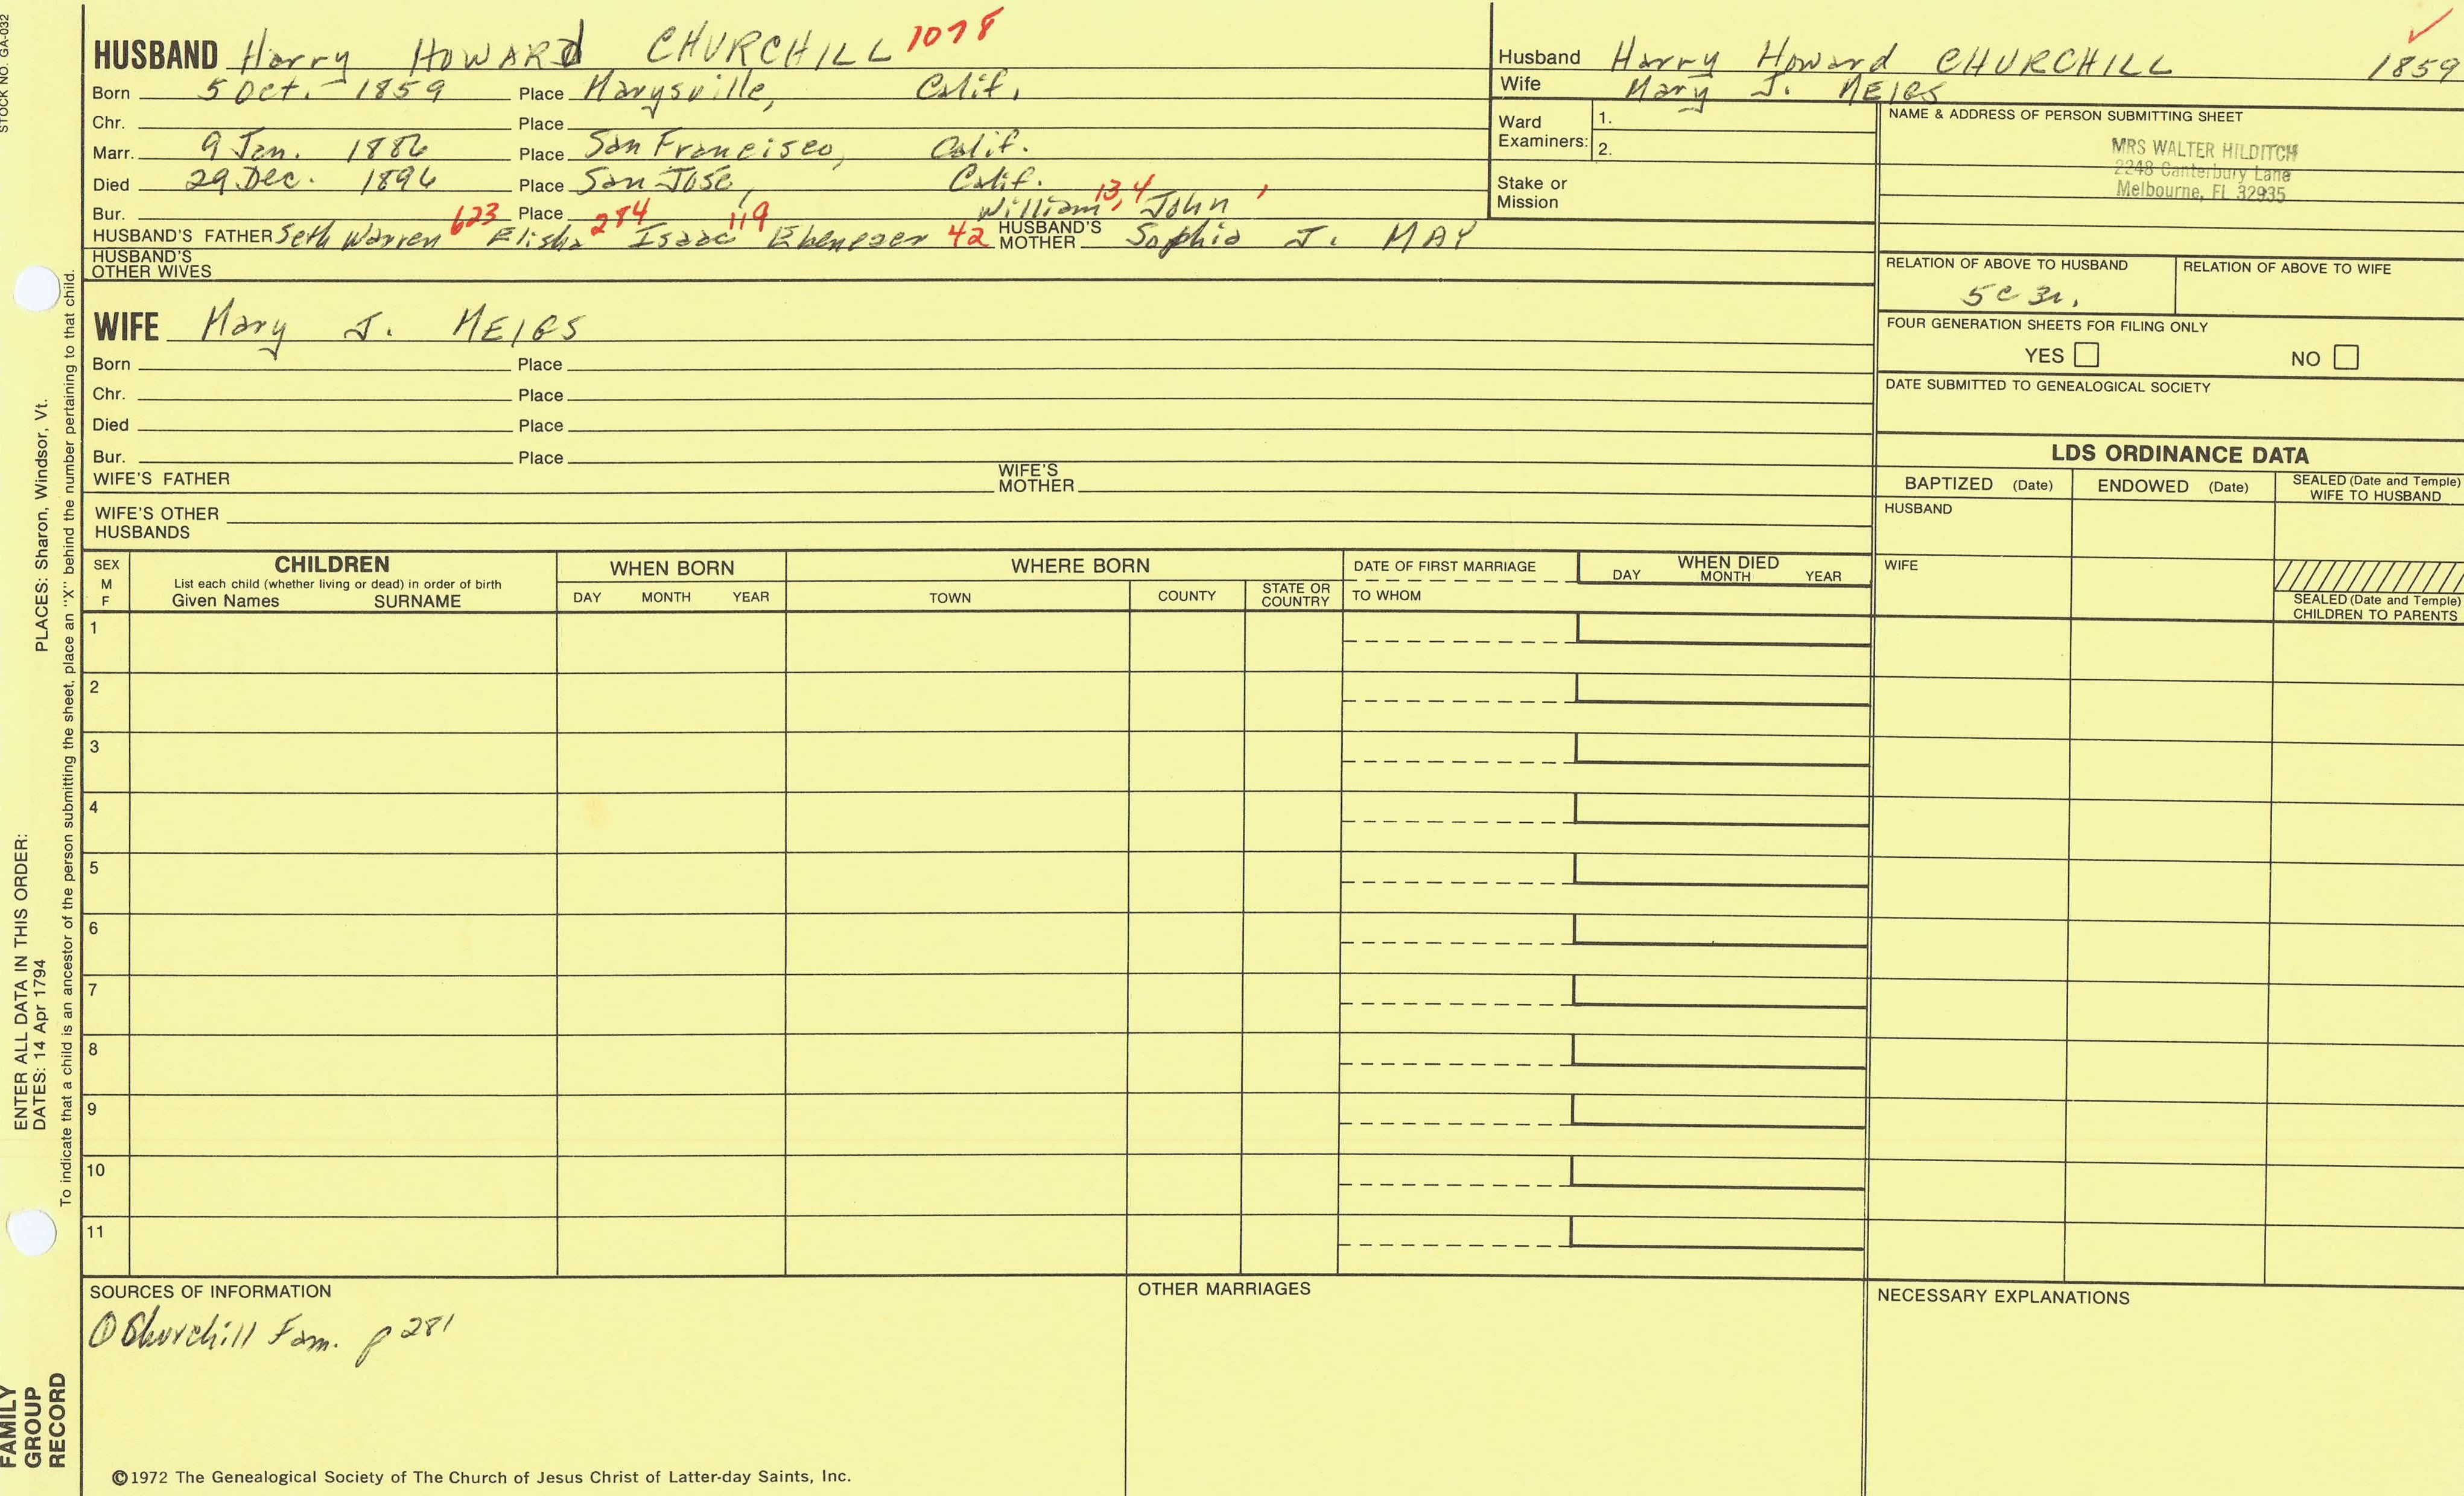 STOCK NO. GA-032
HUSBAND Harry HOWARd CHURCHILL 1078
Born 5 Oct. 1859 Place Marysville, Calif.
Chr. Place
Marr. 9 Jan. 1886 Place San Francisco, Calif.
Died 29 Dec. 1896 Place San Jose, Calif.
Bur. Place William 13, John 4,
HUSBAND'S FATHER Seth Warren 623 Elisha 284 Isaac 119 Ebenezer 42 HUSBAND'S MOTHER Sophia J. MAY
HUSBAND'S OTHER WIVES
WIFE Mary J. MEIGS
Born Place
Chr. Place
Died Place
Bur. Place
WIFE'S FATHER WIFE'S MOTHER
WIFE'S OTHER HUSBANDS
Husband Harry Howard CHURCHILL 1859
Wife Mary J. MEIGS
Ward Examiners: 1.
2.
Stake or Mission
NAME & ADDRESS OF PERSON SUBMITTING SHEET
MRS WALTER HILDITCH
2248 Canterbury Lane
Melbourne, FL 32935
RELATION OF ABOVE TO HUSBAND RELATION OF ABOVE TO WIFE
5c 3r.
FOUR GENERATION SHEETS FOR FILING ONLY
YES NO
DATE SUBMITTED TO GENEALOGICAL SOCIETY
LDS ORDINANCE DATA
BAPTIZED (Date) ENDOWED (Date) SEALED (Date and Temple) WIFE TO HUSBAND
HUSBAND
WIFE
SEALED (Date and Temple) CHILDREN TO PARENTS
SEX M F CHILDREN WHEN BORN WHERE BORN DATE OF FIRST MARRIAGE WHEN DIED
List each child (whether living or dead) in order of birth
Given Names SURNAME DAY MONTH YEAR TOWN COUNTY STATE OR COUNTRY TO WHOM DAY MONTH YEAR
1
2
3
4
5
6
7
8
9
10
11
SOURCES OF INFORMATION OTHER MARRIAGES NECESSARY EXPLANATIONS
① Churchill Fam. p 281
©1972 The Genealogical Society of The Church of Jesus Christ of Latter-day Saints, Inc.
FAMILY GROUP RECORD
ENTER ALL DATA IN THIS ORDER:
DATES: 14 Apr 1794 PLACES: Sharon, Windsor, Vt.
To indicate that a child is an ancestor of the person submitting the sheet, place an "X" behind the number pertaining to that child.